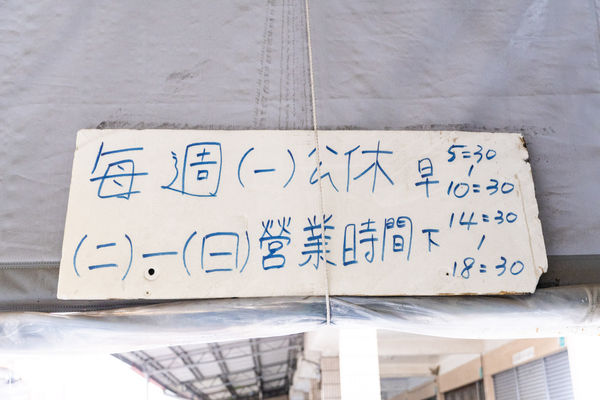 每週(一)公休 早 5:30
~
10:30
(二)一(日)營業時間 下 14:30
~
18:30